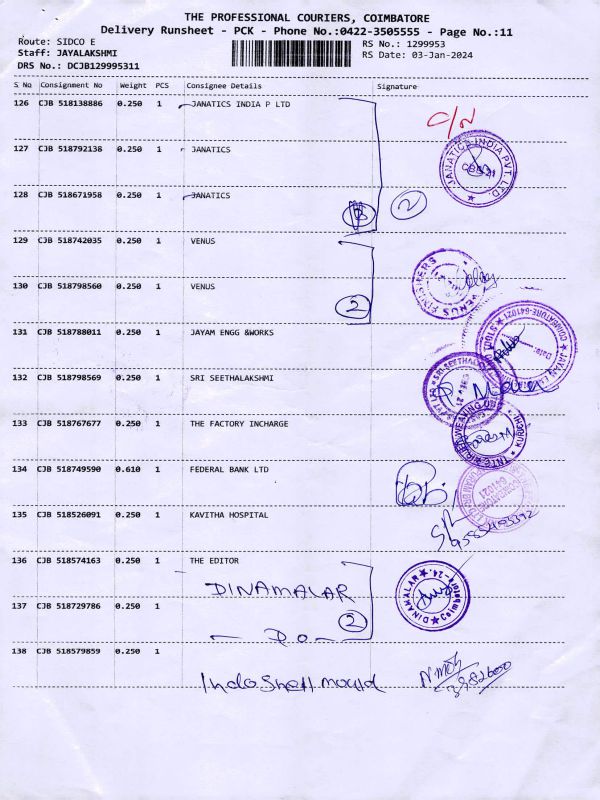 THE PROFESSIONAL COURIERS, COIMBATORE
Delivery Runsheet - PCK - Phone No.:0422-3505555 - Page No.:11
Route: SIDCO E
RS No.: 1299953
Staff: JAYALAKSHMI
RS Date: 03-Jan-2024
DRS No.: DCJB129995311
S No Consignment No Weight PCS Consignee Details Signature
126 CJB 518138886 0.250 1 JANATICS INDIA P LTD
C/N
127 CJB 518792138 0.250 1 JANATICS
JANATICS INDIA PVT. LTD.
128 CJB 518671958 0.250 1 JANATICS
2
129 CJB 518742035 0.250 1 VENUS
130 CJB 518798560 0.250 1 VENUS
2
VENUS
131 CJB 518788011 0.250 1 JAYAM ENGG &WORKS
COIMBATORE-641021
Date:
132 CJB 518798569 0.250 1 SRI SEETHALAKSHMI
133 CJB 518767677 0.250 1 THE FACTORY INCHARGE
134 CJB 518749590 0.610 1 FEDERAL BANK LTD
COIMBATORE
641021
135 CJB 518526091 0.250 1 KAVITHA HOSPITAL
136 CJB 518574163 0.250 1 THE EDITOR
DINAMALAR
DINAMALAR Coimbatore-24.
137 CJB 518729786 0.250 1
2
— D.O —
138 CJB 518579859 0.250 1
Indo Shell mould